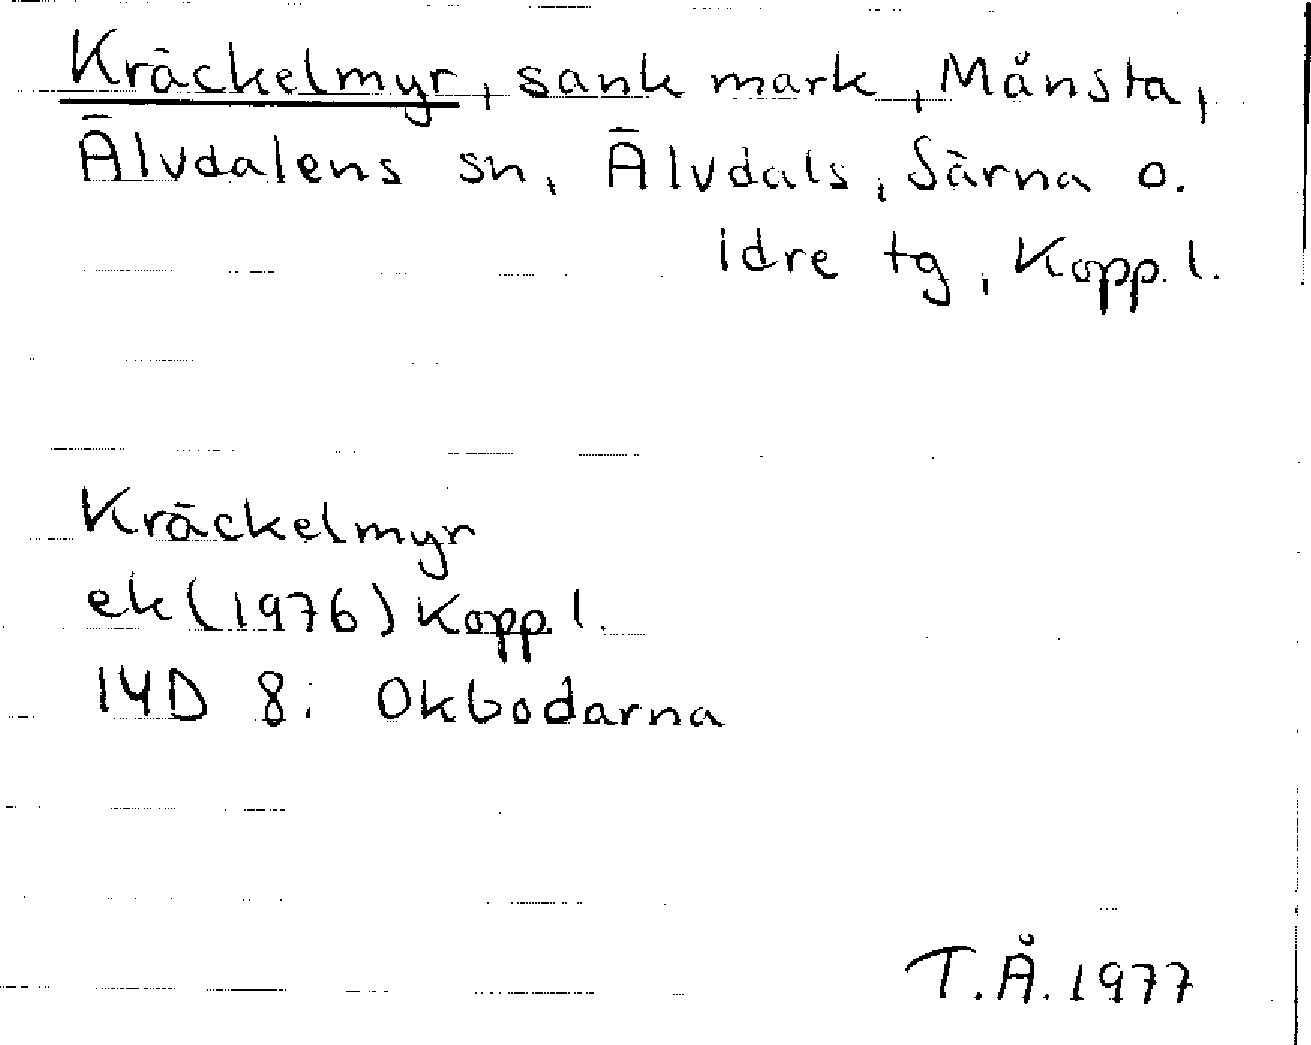 Kräckelmyr, sank mark, Månsta,
Älvdalens sn, Älvdals, Särna o.
Idre tg, Kopp. l.
Kräckelmyr
ek (1976) Kopp l.
14D 8i Okbodarna
T.Å. 1977